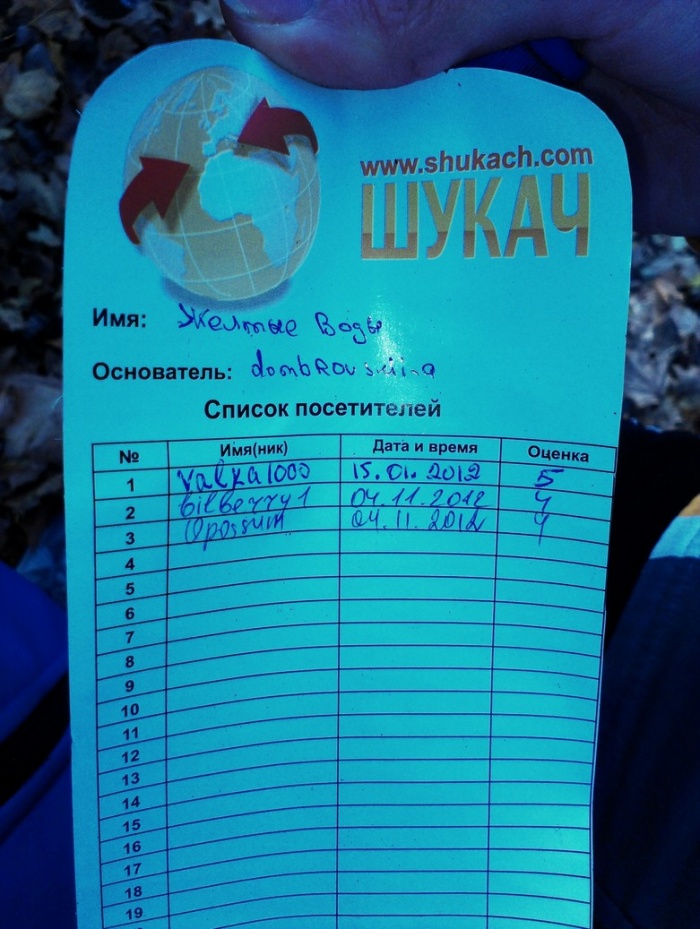 www.shukach.com
ШУКАЧ
Имя: Желтые Воды
Основатель:
Список посетителей
№ Имя(ник) Дата и время Оценка
1 Valka1000 15.01.2012 5
2 bilberry1 04.11.2012 4
3 Opossum 04.11.2012 4
4
5
6
7
8
9
10
11
12
13
14
15
16
17
18
19